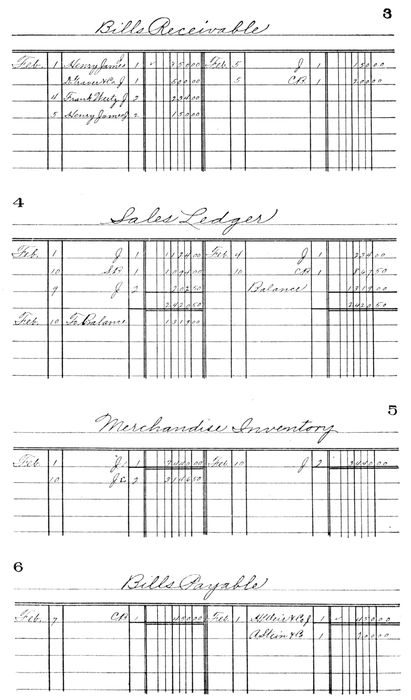 3
Bills Receivable
Feb. 1 Henry James 1 ✓ 250.00 Feb. 5 J 1 150.00
1 500.00 5 CB 1 200.00
4 Frank Wertz J 2 234.00
5 Henry James J 2 150.00
4
Sales Ledger
Feb. 1 J 1 1124.00 Feb. 4 J 1 234.00
10 SB 1 1094.00 10 CB 1 867.50
9 J 2 202.50 Balance 1319.00
2420.50 2420.50
Feb. 10 To Balance 1319.00
5
Merchandise Inventory
Feb. 1 J 1 2440.00 Feb. 10 J 2 2440.00
10 J 2
6
Bills Payable
Feb. 7 CB 1 450.00 Feb. 1 1 ✓ 450.00
1 200.00